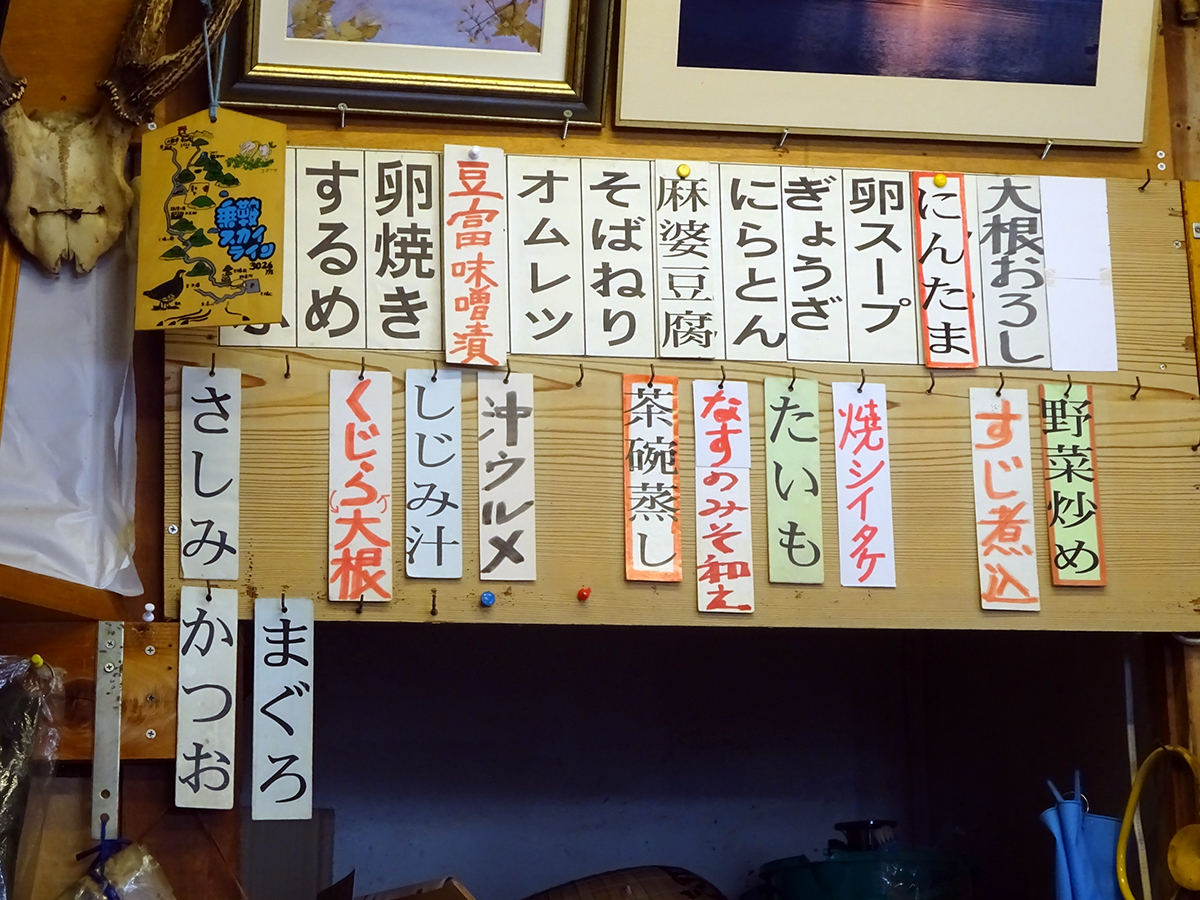 乗鞍
スカイ
ライン
3026
するめ
卵焼き
豆富味噌漬
オムレツ
そばねり
麻婆豆腐
にらとん
ぎょうざ
卵スープ
にんたま
大根おろし
さしみ
くじら大根
しじみ汁
汁ウルメ
茶碗蒸し
なすのみそ和え
たいも
焼シイタケ
すじ煮込
野菜炒め
かつお
まぐろ